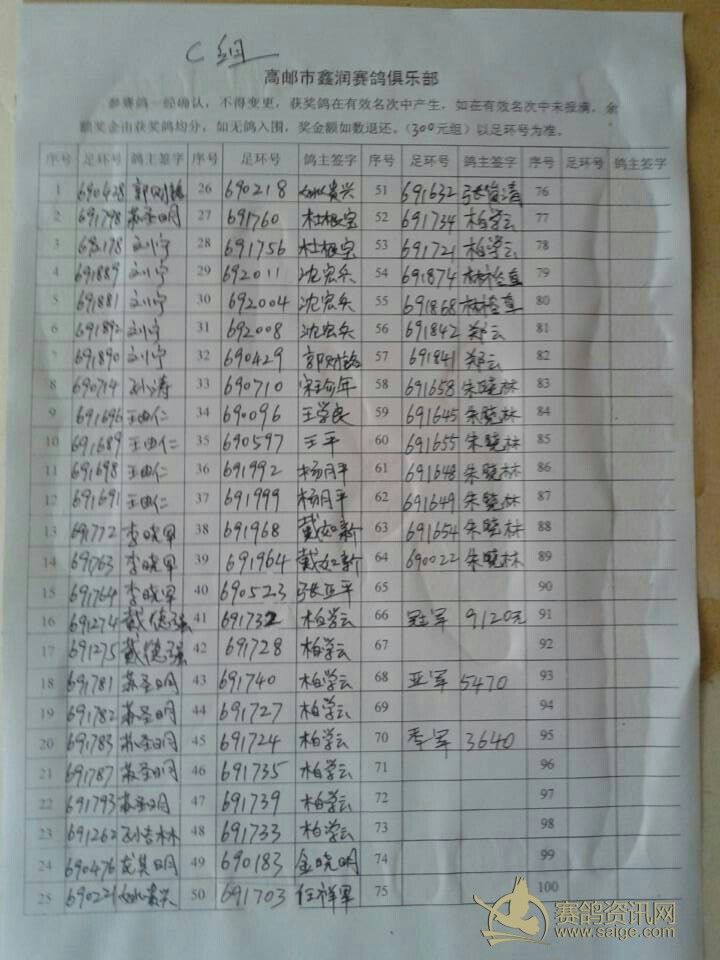 C组
高邮市鑫润赛鸽俱乐部
参赛鸽一经确认，不得变更，获奖鸽在有效名次中产生，如在有效名次中未报满，余
额奖金由获奖鸽均分，如无鸽入围，奖金额如数退还。（300元组）以足环号为准。
序号 足环号 鸽主签字 序号 足环号 鸽主签字 序号 足环号 鸽主签字 序号 足环号 鸽主签字
1 690428 郭财铭 26 690218 贵兴 51 691632 张俊清 76
2 691798 苏圣明 27 691760 杜根宝 52 691734 柏学云 77
3 刘宁 28 691756 杜根宝 53 691721 柏学云 78
4 691889 刘宁 29 692011 沈宏兵 54 691874 79
5 691881 刘宁 30 692004 沈宏兵 55 691868 80
6 691892 刘宁 31 692008 沈宏兵 56 691842 郑云 81
7 691890 刘宁 32 690429 郭财铭 57 691841 郑云 82
8 690714 孙涛 33 690710 58 691658 朱晓林 83
9 691696 王由仁 34 690096 王学良 59 691645 朱晓林 84
10 691689 王由仁 35 690597 王平 60 691655 朱晓林 85
11 691698 王由仁 36 691992 杨月平 61 691648 朱晓林 86
12 691691 王由仁 37 691999 杨月平 62 691649 朱晓林 87
13 691772 李晓军 38 691968 戴如新 63 691654 朱晓林 88
14 691763 李晓军 39 691964 戴如新 64 690022 朱晓林 89
15 691764 李晓军 40 690523 张正平 65 90
16 691274 戴德强 41 691732 柏学云 66 冠军 9120元 91
17 691275 戴德强 42 691728 柏学云 67 92
18 691781 苏圣明 43 691740 柏学云 68 亚军 5470 93
19 691782 苏圣明 44 691727 柏学云 69 94
20 691783 苏圣明 45 691724 柏学云 70 季军 3640 95
21 691787 苏圣明 46 691735 柏学云 71 96
22 691793 苏圣明 47 691739 柏学云 72 97
23 691262 孙吉林 48 691733 柏学云 73 98
24 690476 龙其明 49 690183 金晓明 74 99
25 690221 贵兴 50 691703 任祥军 75 100
赛鸽资讯网
www.saige.com